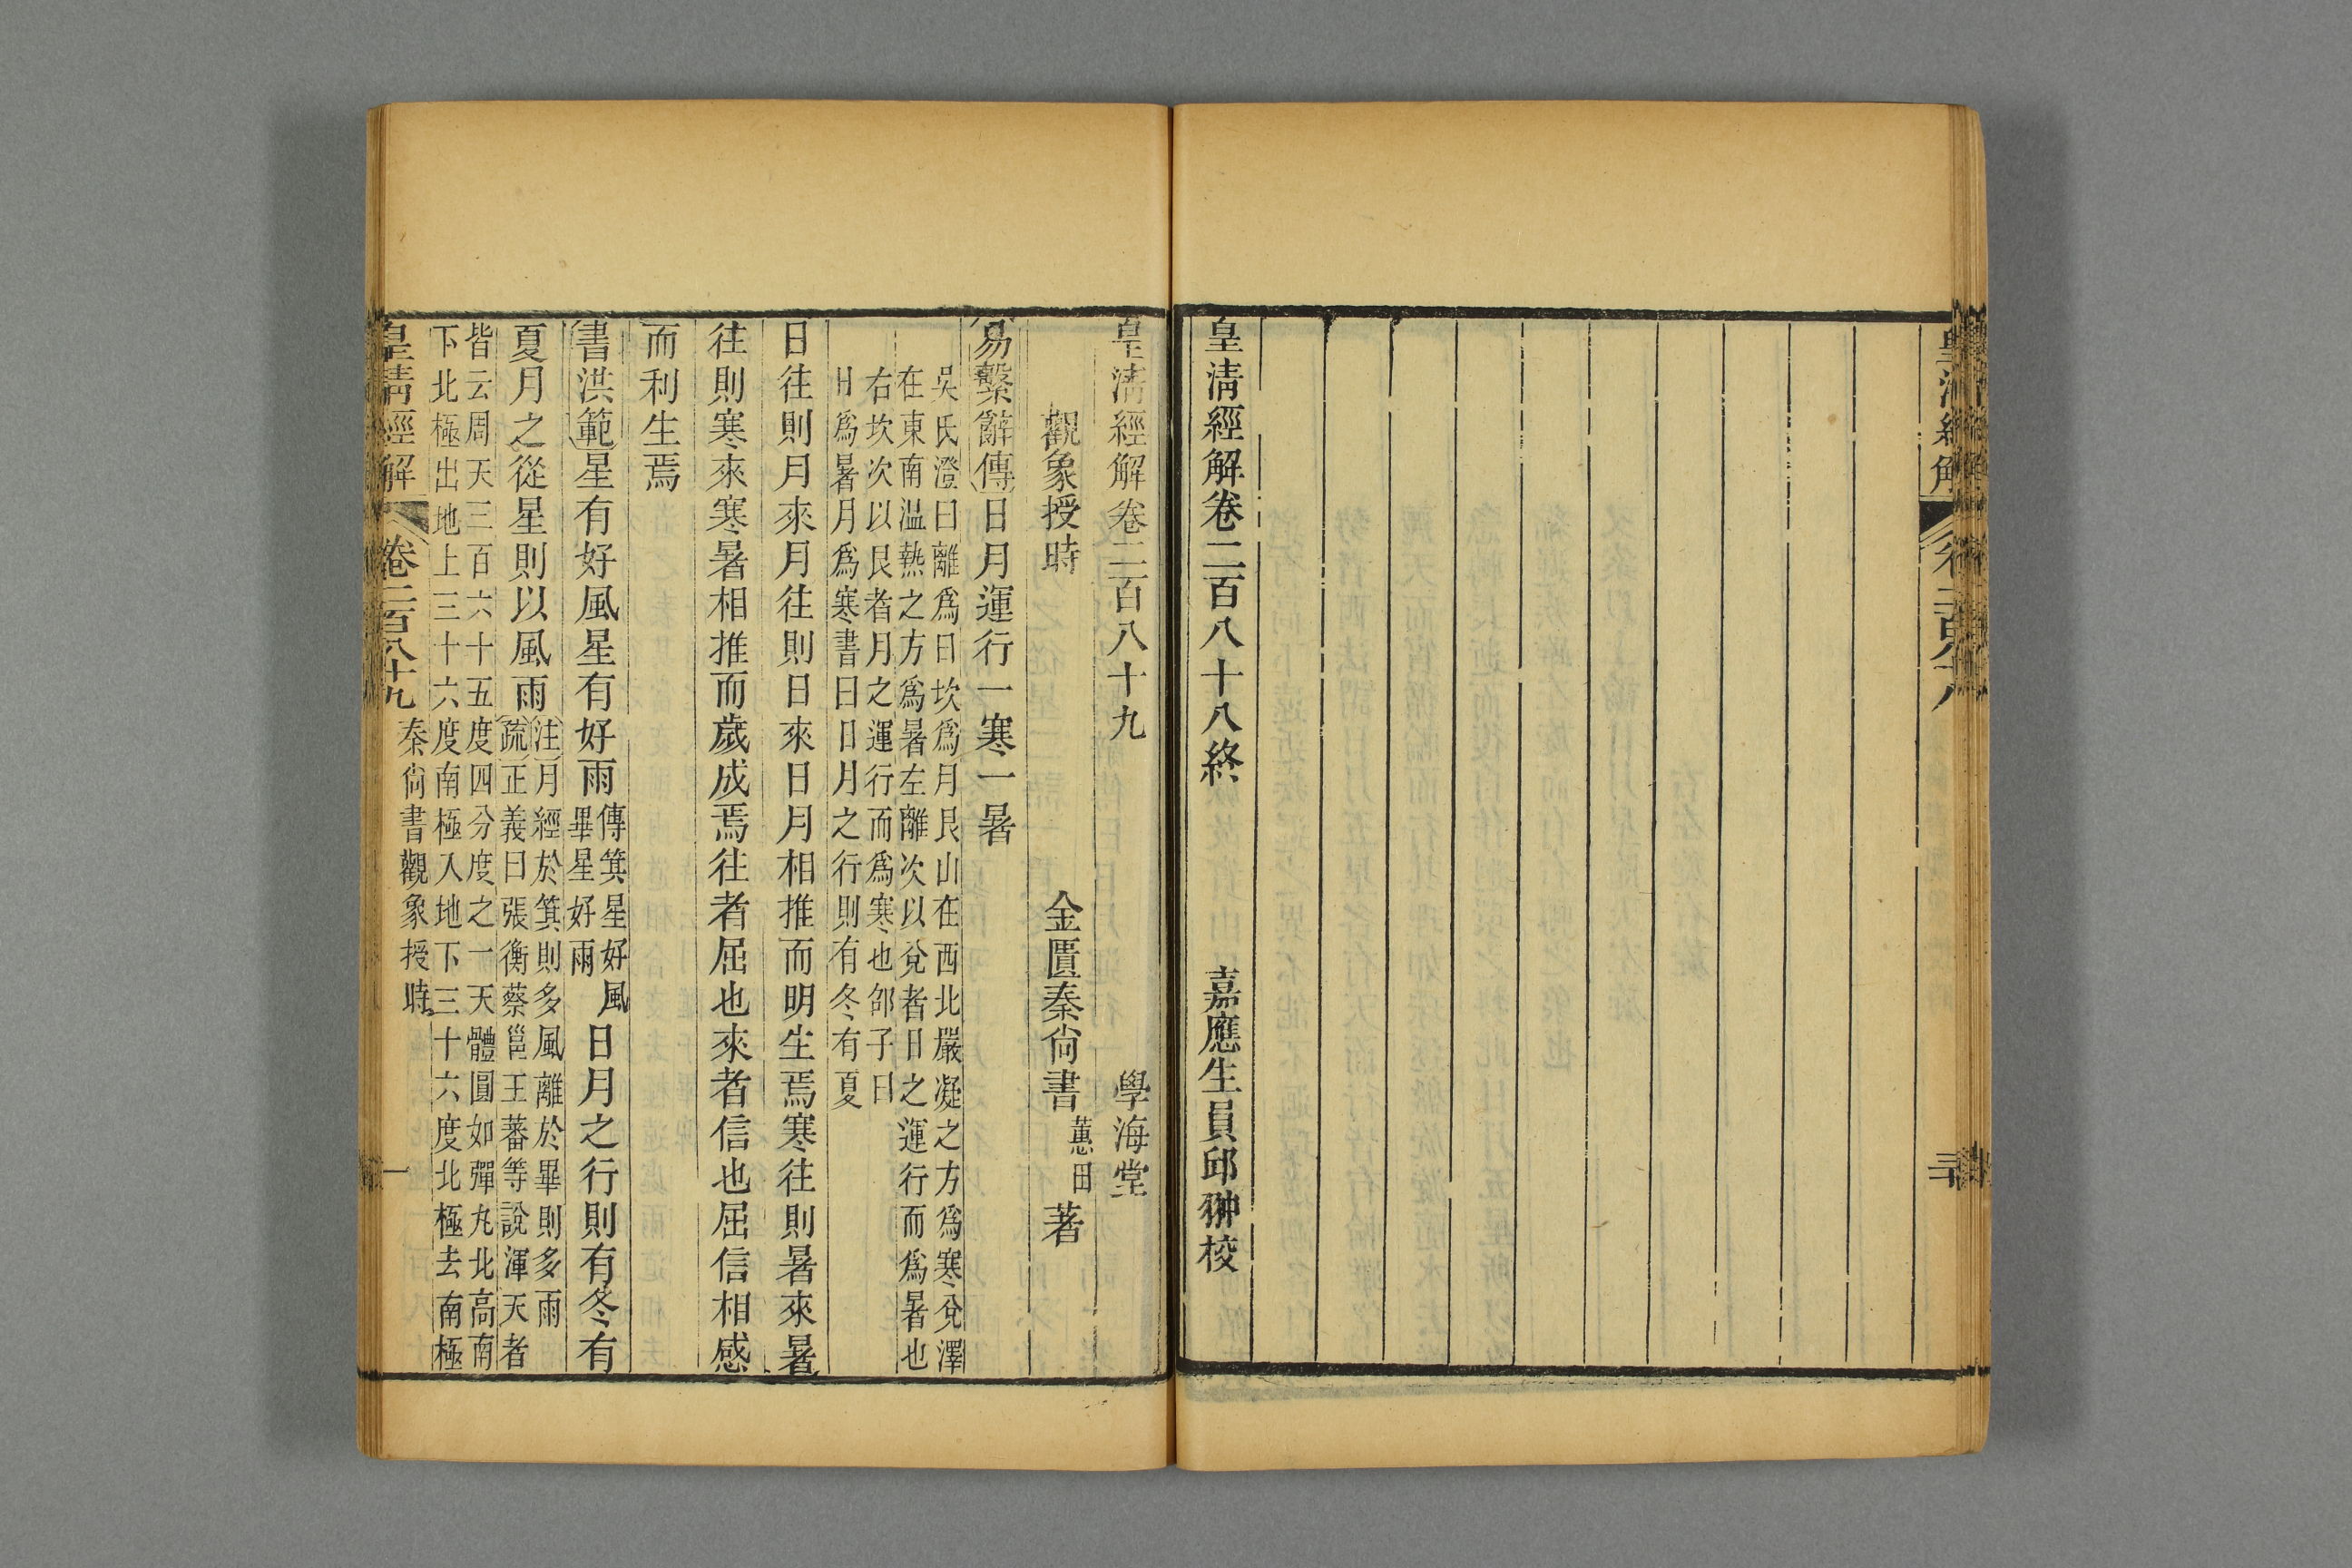 皇清經解卷二百八十八終　嘉應生員邱翀校
皇清經解卷二百八十九　學海堂
觀象授時　金匱秦尙書蕙田著
易繫辭傳日月運行一寒一暑
吳氏澄曰離爲日坎爲月艮山在西北嚴凝之方爲寒兌澤
在東南溫熱之方爲暑左離次以兌者日之運行而爲暑也
右坎次以艮者月之運行而爲寒也邵子曰
日爲暑月爲寒書曰日月之行則有冬有夏
日往則月來月往則日來日月相推而明生焉寒往則暑來暑
往則寒來寒暑相推而歲成焉往者屈也來者信也屈信相感
而利生焉
書洪範星有好風星有好雨傳箕星好風畢星好雨日月之行則有冬有
夏月之從星則以風雨注月經於箕則多風離於畢則多雨
疏正義曰張衡蔡邕王蕃等說渾天者
皆云周天三百六十五度四分度之一天體圓如彈丸北高南
下北極出地上三十六度南極入地下三十六度北極去南極
皇清經解　卷二百八十九　秦尙書觀象授時　一